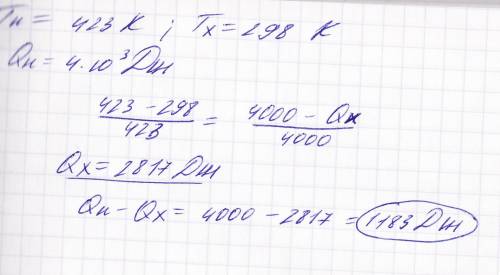 Tн = 423 K ; Tх = 298 K
Qн = 4·10³ Дж
423 - 298 / 423 = 4000 - Qх / 4000
Qх = 2817 Дж
Qн - Qх = 4000 - 2817 = 1183 Дж